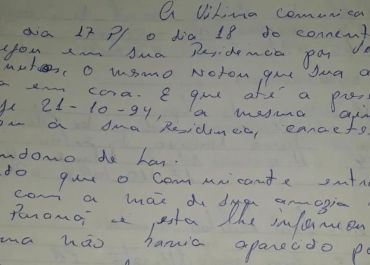 A Vitima comunica
dia 17 P/ o dia 18 do corrent
em sua Residencia por
, o mesmo Notou que sua a
em casa. E que até a pres
21-10-94, a mesma ain
a sua Residencia, caracte
ndono de Lar.
do que o comunicante entr
com a mãe de sua amazia
Paraná e esta lhe informou
ma não havia aparecido p